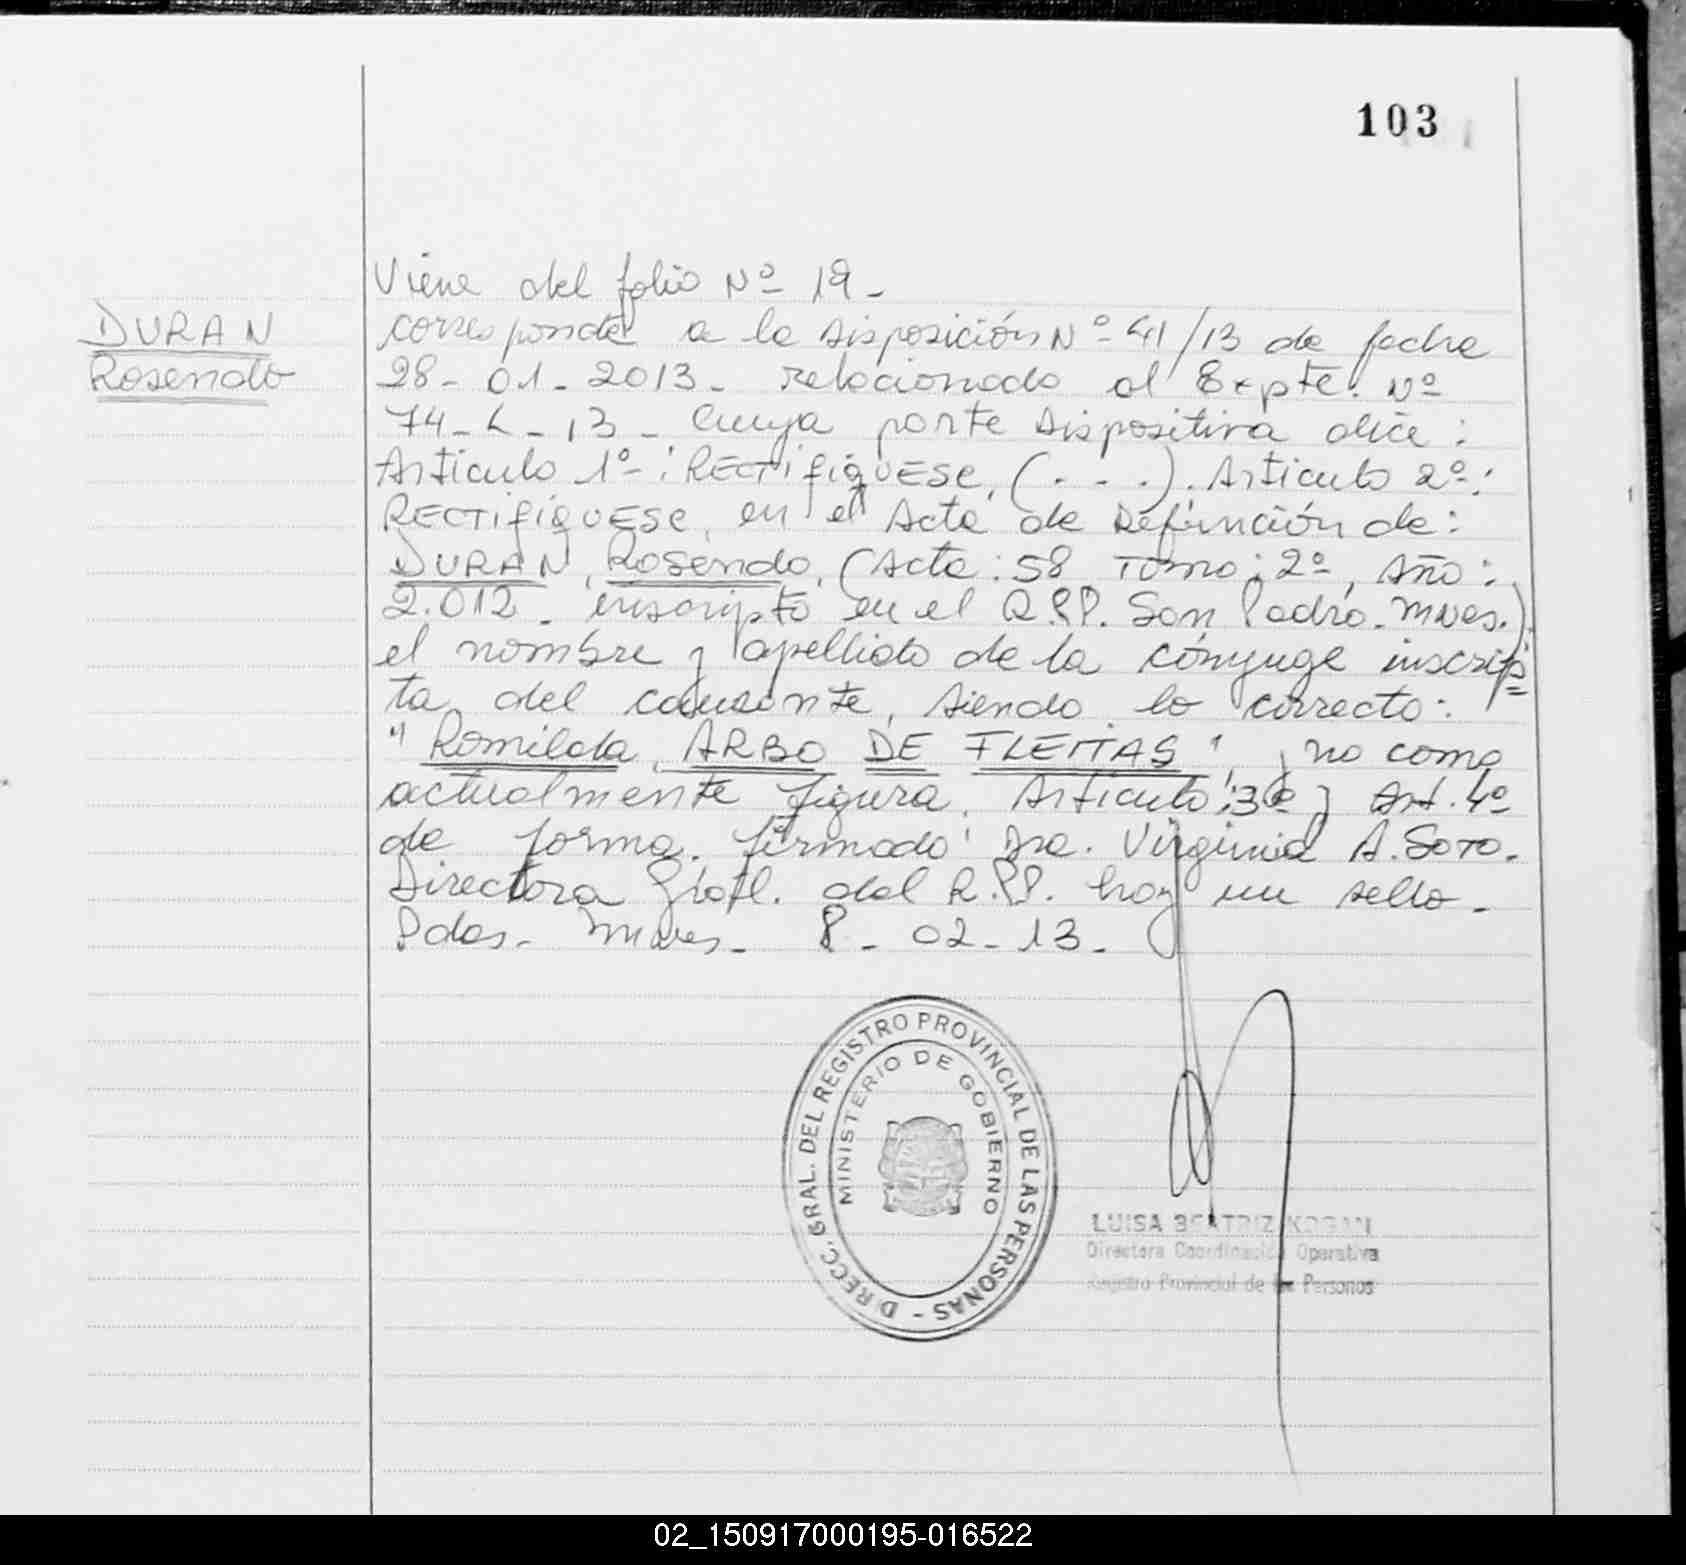 103
DURAN
Rosendo
Viene del folio Nº 19-
corresponde a la Disposición Nº 41/13 de fecha
28-01-2013- relacionado al Expte. Nº
74-L-13- Cuya parte Dispositiva dice:
Artículo 1º: RECTIFIQUESE, (...). Artículo 2º:
RECTIFIQUESE, en el Acta de Defunción de:
DURAN, Rosendo, (Acta: 58 Tomo: 2º, Año:
2.012- inscripto en el R.P.P. San Pedro-Mnes.)
el nombre y apellido de la cónyuge inscrip=
ta del causante, siendo lo correcto:
"Romilda, ARBO DE FLEITAS", y no como
actualmente figura. Artículo: 3º y Art. 4º
de forma. firmado: Dra. Virginia A. SOTO.
Directora Gral. del R.P.P. hay un sello-
Pdas- Mnes- 8-02-13-
DIRECC. GRAL. DEL REGISTRO PROVINCIAL DE LAS PERSONAS -
MINISTERIO DE GOBIERNO
LUISA BEATRIZ KOGAN
Directora Coordinación Operativa
Registro Provincial de las Personas
02_150917000195-016522